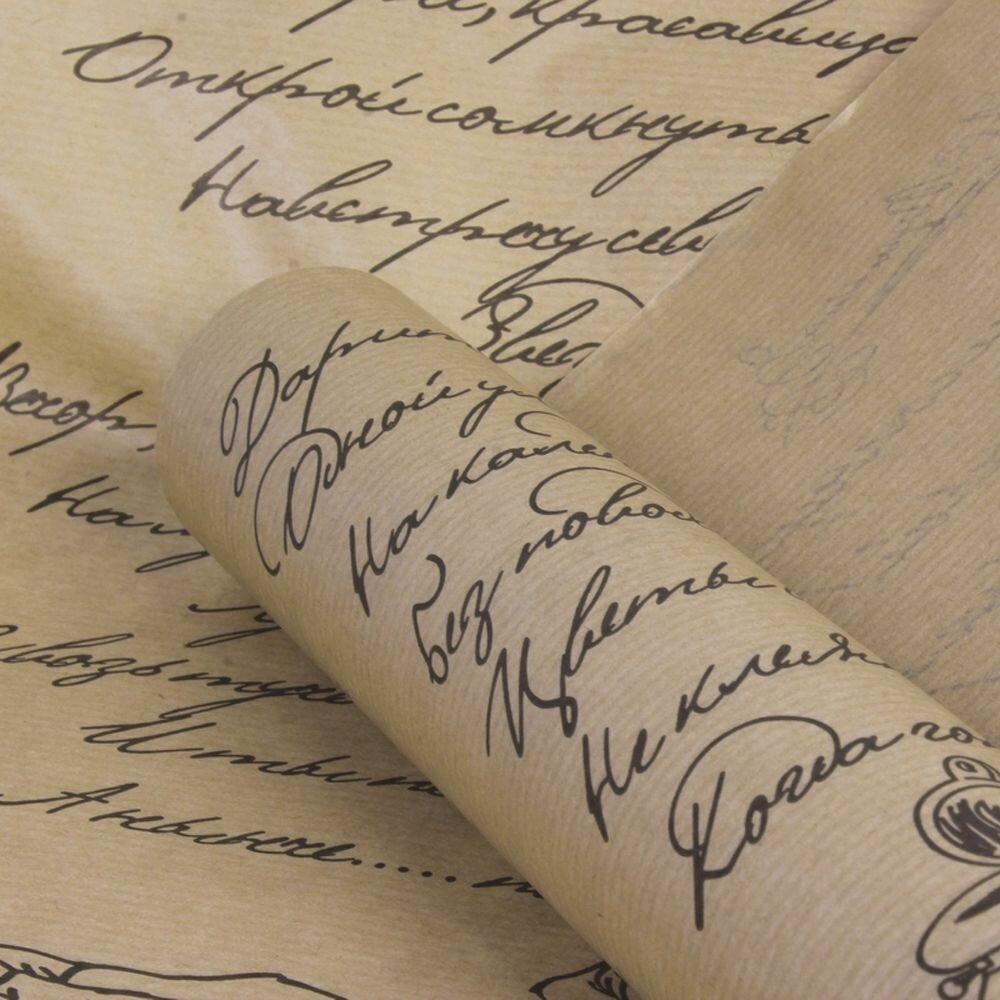 , красавица
Открой сомкнуты
Навстречу сев
Звез
Вечор,
На му
Лу
сквозь тучи
И ты пе
А нынче.....
Дари
Одной у
На кал
Без повод
Цветы
Не кля
Когда го